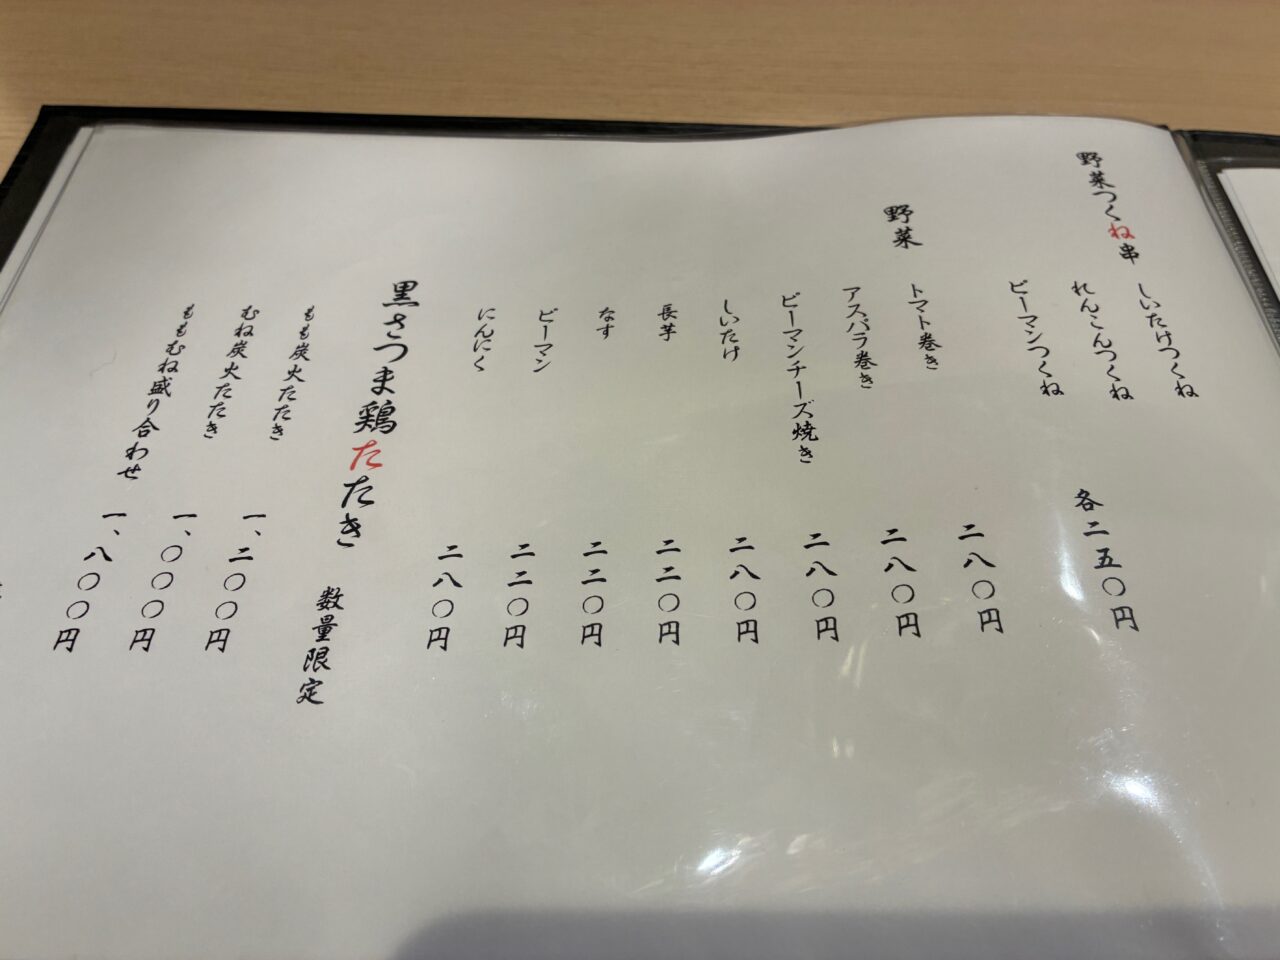 野菜つくね串
しいたけつくね
れんこんつくね
ピーマンつくね
各二五〇円
野菜
トマト巻き 二八〇円
アスパラ巻き 二八〇円
ピーマンチーズ焼き 二八〇円
しいたけ 二八〇円
長芋 二二〇円
なす 二二〇円
ピーマン 二二〇円
にんにく 二八〇円
黒さつま鶏たたき 数量限定
もも炭火たたき 一、二〇〇円
むね炭火たたき 一、〇〇〇円
ももむね盛り合わせ 一、八〇〇円